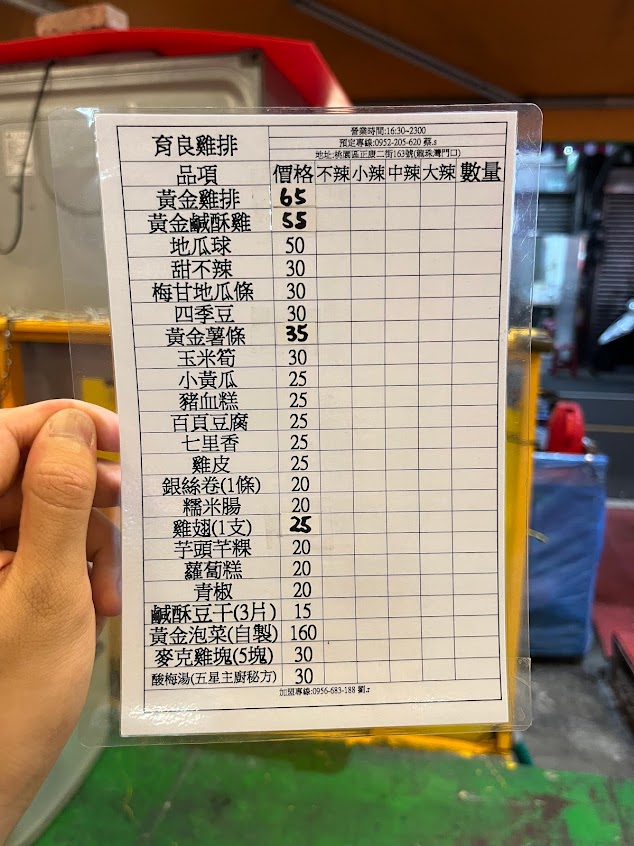 育良雞排
營業時間:16:30~2300
預定專線:0952-205-620 蔡.s
地址:桃園區正康二街163號(龍珠灣門口)
品項 價格 不辣 小辣 中辣 大辣 數量
黃金雞排 65
黃金鹹酥雞 55
地瓜球 50
甜不辣 30
梅甘地瓜條 30
四季豆 30
黃金薯條 35
玉米筍 30
小黃瓜 25
豬血糕 25
百頁豆腐 25
七里香 25
雞皮 25
銀絲卷(1條) 20
糯米腸 20
雞翅(1支) 25
芋頭芊粿 20
蘿蔔糕 20
青椒 20
鹹酥豆干(3片) 15
黃金泡菜(自製) 160
麥克雞塊(5塊) 30
酸梅湯(五星主廚秘方) 30
加盟專線:0956-683-188 劉.r